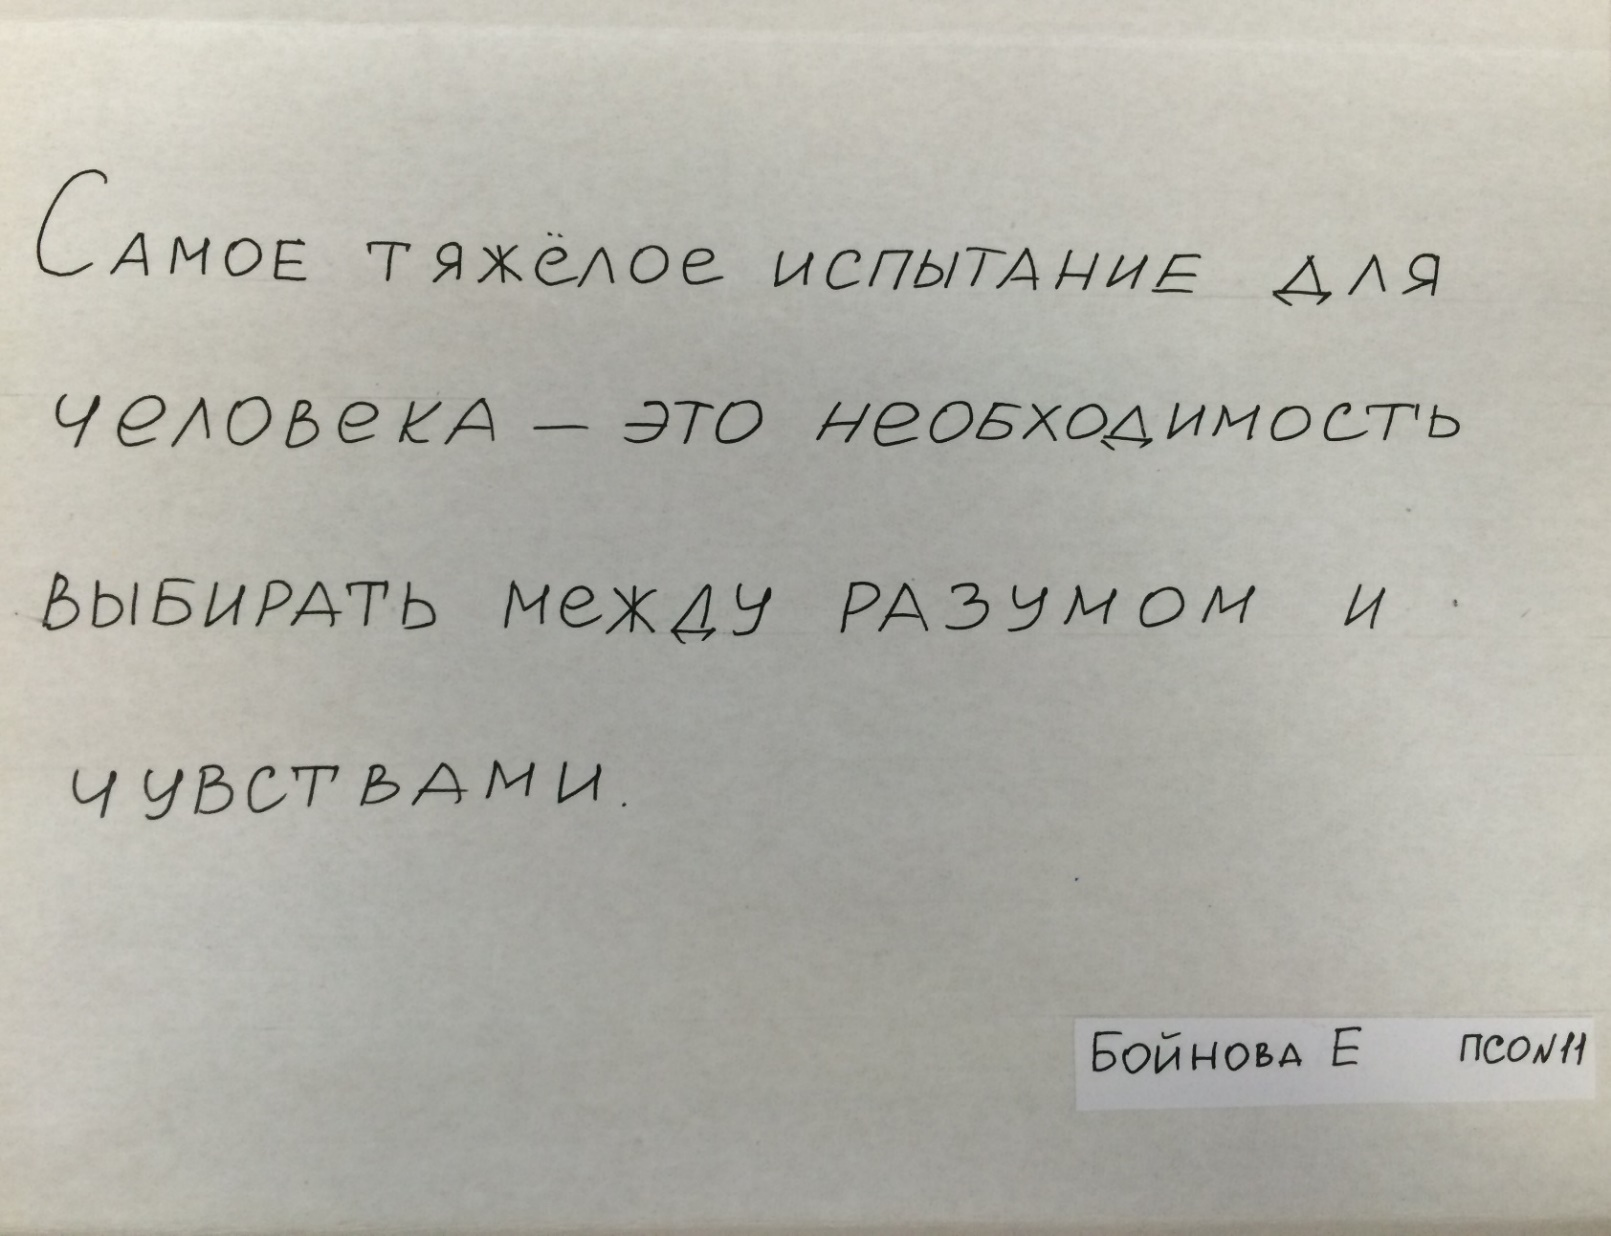 Самое тяжёлое испытание для
человека – это необходимость
выбирать между разумом и
чувствами.
Бойнова Е ПСОN11